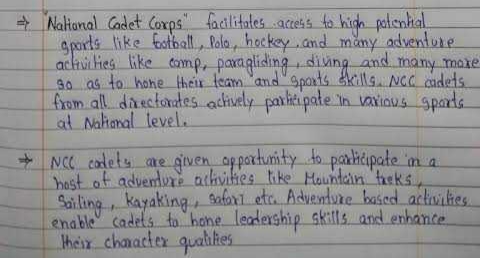 ⇒ "National Cadet Corps" facilitates access to high potential
sports like football, Polo, hockey, and many adventure
activities like camp, paragliding, diving and many more
so as to hone their team and sports skills. NCC cadets
from all directorates actively participate in various sports
at National level.
⇒ NCC cadets are given opportunity to participate in a
host of adventure activities like Mountain treks,
Sailing, Kayaking, Safari etc. Adventure based activities
enable cadets to hone leadership skills and enhance
their character qualities